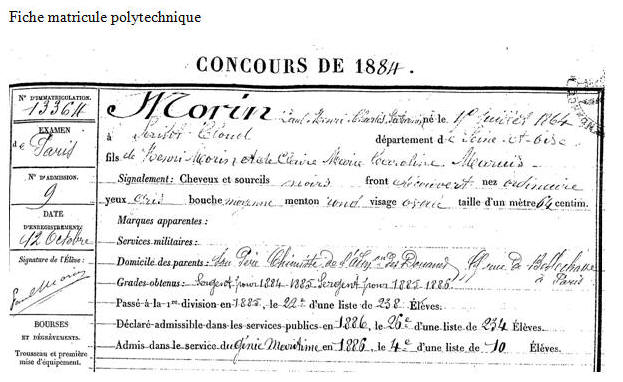 Fiche matricule polytechnique
CONCOURS DE 1884.
N° D'IMMATRICULATION.
13364
EXAMEN
de Paris
N° D'ADMISSION.
9
DATE
D'ENREGISTREMENT
12 Octobre
Signature de l'Élève :
Paul Morin
BOURSES
ET DÉGRÈVEMENTS.
Trousseau et première
mise d'équipement.
Morin Paul Henri Charles né le juillet 1864
à Saint Cloud département de Seine-et-Oise
fils de Henri Morin et de Claire Marie Caroline
Signalement: Cheveux et sourcils noirs front découvert nez ordinaire
yeux gris bouche moyenne menton rond visage ovale taille d'un mètre 64 centim.
Marques apparentes :
Services militaires :
Domicile des parents: Son Père Chimiste de l'Adon des Douanes, rue de Bellechasse à Paris
Grades obtenus: Sergent pour 1884-1885 Sergent pour 1885-1886.
Passé à la 1re division en 1885, le 22e d'une liste de 238 Élèves.
Déclaré admissible dans les services publics en 1886, le 26e d'une liste de 234 Élèves.
Admis dans le service du Génie Maritime en 1886, le 4e d'une liste de 10 Élèves.